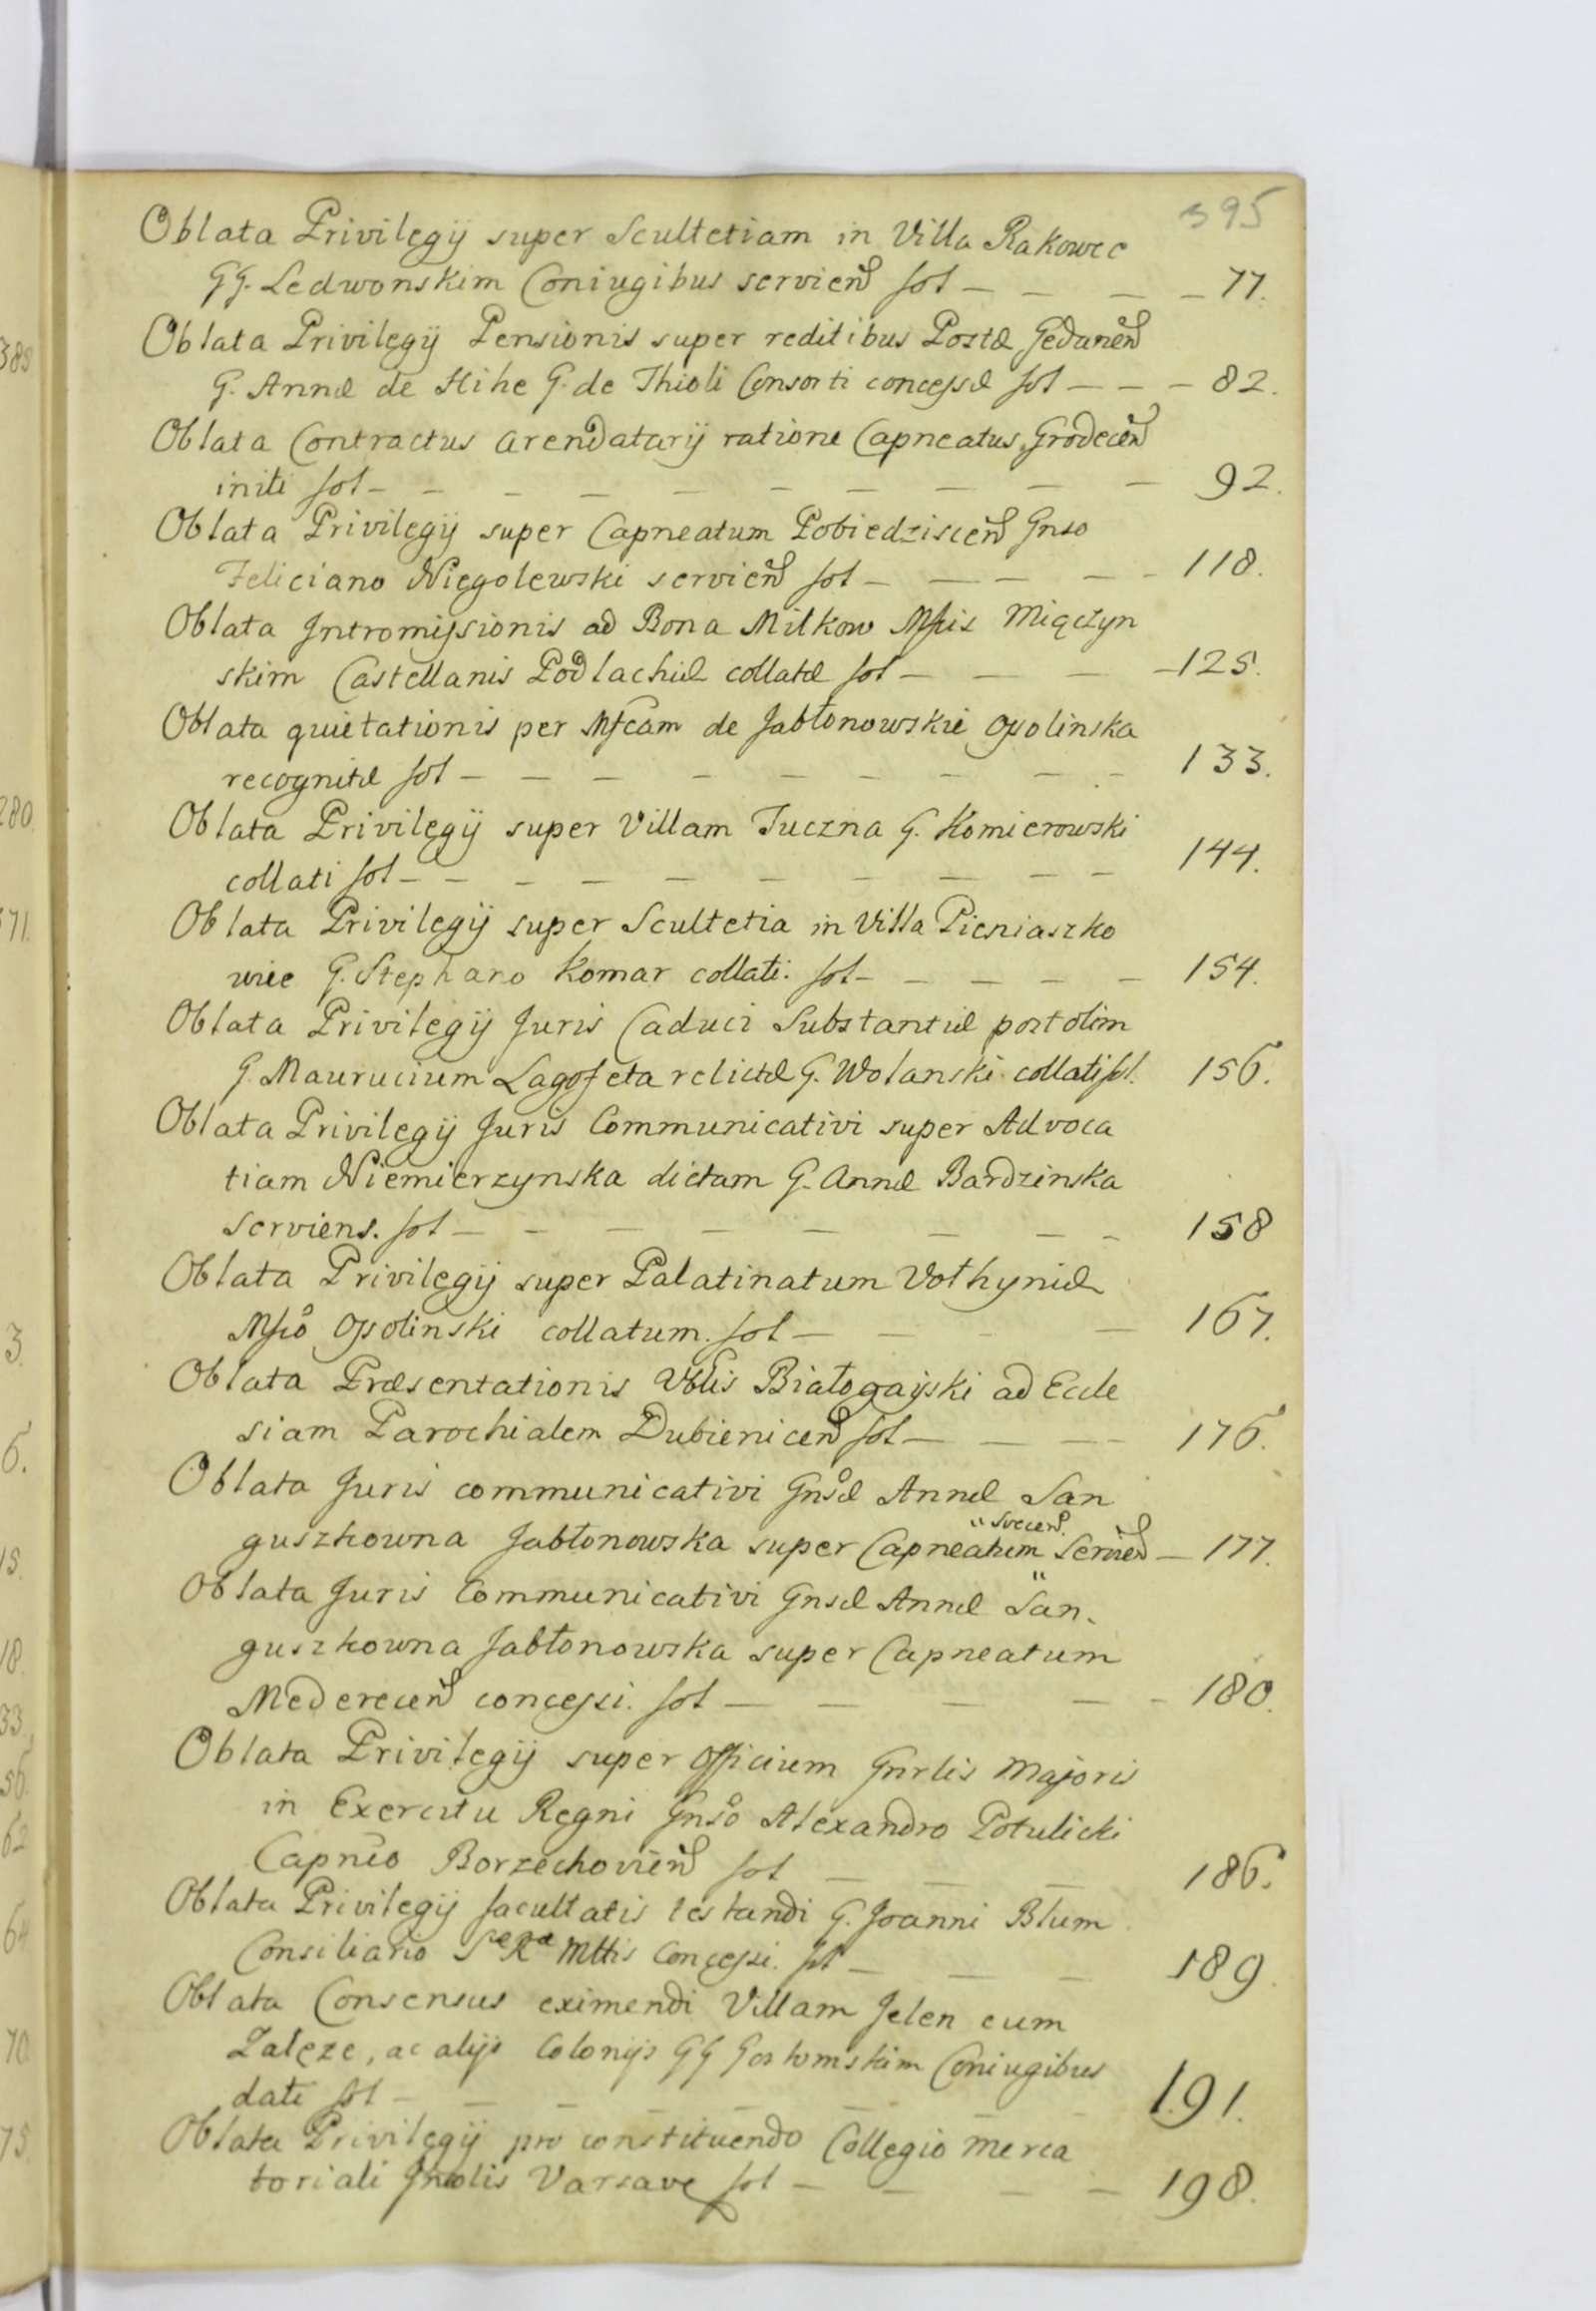 395
Oblata Privilegij super Scultetiam in Villa Rakowec
GG. Ledwonskim Coniugibus servien̄ fol — — — — 77.
Oblata Privilegij Pensionis super reditibus Postæ Gedanen̄
G. Annæ de Hihe G. de Thioli Consorti concessæ fol — — — 82.
Oblata Contractus arendatarij ratione Capneatus Grodecen̄
initi fol — — — — — — — — — — 92.
Oblata Privilegij super Capneatum Pobiedziscen̄ Gnso
Feliciano Niegolewski servien̄ fol — — — — — 118.
Oblata Intromissionis ad Bona Milkow Mfcis Miączyn
skim Castellanis Podlachiæ collatæ fol — — — — 125.
Oblata quietationis per Mfcam de Jabłonowskie Ossolinska
recognitæ fol — — — — — — — — — 133.
Oblata Privilegij super Villam Tuczna G. Komierowski
collati fol — — — — — — — — — — 144.
Oblata Privilegij super Scultetia in Villa Pieniaszko
wie G. Stephano Komar collati. fol — — — — — 154.
Oblata Privilegij Juris Caduci Substantiæ post olim
G. Maurucium Lagofeta relictæ G. Wolanski collati fol. 156.
Oblata Privilegij Juris Communicativi super Advoca
tiam Niemierzynska dictam G. Annæ Bardzinska
Serviens. fol — — — — — — — — 158
Oblata Privilegij super Palatinatum Volhyniæ
Mfco Ossolinski collatum. fol — — — — 167.
Oblata Præsentationis Vblis Białogayski ad Eccle
siam Parochialem Dubienicen̄ fol — — — — 176.
Oblata Juris communicativi Gnsæ Annæ San
guszkowna Jabłonowska super Capneatum "Svecen̄. Servien̄ — 177.
Oblata Juris Communicativi Gnsæ Annæ San-
guszkowna Jabłonowska super Capneatum
Mederecen̄ concessi. fol — — — — — 180.
Oblata Privilegij super Officium Gnrlis Majoris
in Exercitu Regni Gnso Alexandro Potulicki
Capneo Borzechovien̄ fol — — — 186.
Oblata Privilegij facultatis testandi G. Joanni Blum
Consiliario Sæ Ræ Mttis Concessi. fol — — — 189.
Oblata Consensus eximendi Villam Jelen cum
Zalęze, ac alijs Colonijs GG Gostomskim Coniugibus
dati fol — — — — — — 191.
Oblata Privilegij pro constituendo Collegio merca
toriali Varsave fol — — — — 198.